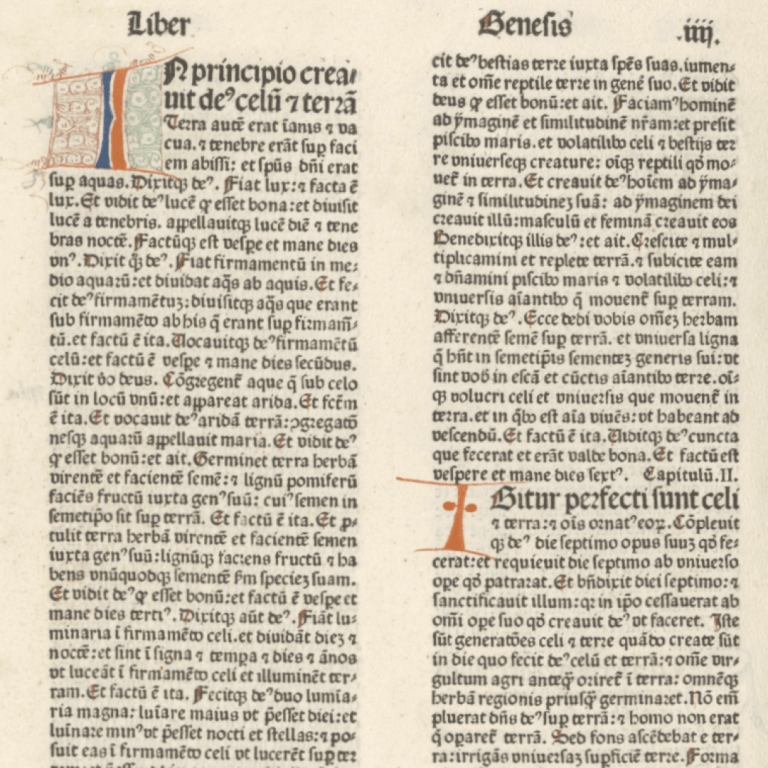 Liber
Genesis
.iiij.
IN principio crea/
uit deꝰ celū ⁊ terrā
Terra autē erat īanis ⁊ va
cua. ⁊ tenebre erāt suꝑ faci
em abissi: et spūs dn̄i erat
suꝑ aquas. Dixitqꝫ deꝰ. Fiat lux: ⁊ facta ē
lux. Et vidit deꝰ lucē ꝙ esset bona: et diuisit
lucē a tenebris. appellauitqꝫ lucē diē ⁊ tene
bras noctē. Factūqꝫ est vespe et mane dies
vnꝰ. Dixit q̄ꝫ deꝰ. Fiat firmamentū in me/
dio aquarū: et diuidat aq̄s ab aquis. Et fe/
cit deꝰ firmamētuꝫ: diuisitqꝫ aq̄s que erant
sub firmamēto ab his q̄ erant suꝑ firmam̄/
tū. et factū ē ita. Uocauitqꝫ deꝰ firmamētū
celū: et factū ē vespe ⁊ mane dies secūdus.
Dixit v̄o deus. Cōgregent̄ aque q̄ sub celo
sūt in locū vnū: et appareat arida. Et fctm̄
ē ita. Et vocauit deꝰ aridā terrā: ꝯgregatō
nesqꝫ aquarū appellauit maria. Et vidit deꝰ
ꝙ esset bonū: et ait. Germinet terra herbā
virentē et facientē semē: ⁊ lignū pomiferū
faciēs fructū iuxta genꝰ suū: cuiꝰ semen in
semetip̄o sit suꝑ terrā. Et factū ē ita. Et ꝓ/
tulit terra herbā virentē et facientē semen
iuxta genꝰ suū: lignūqꝫ faciens fructū ⁊ ha
bens vnūquodqꝫ sementē ẜm specieꝫ suam.
Et vidit deꝰ ꝙ esset bonū: et factū ē vespe et
mane dies tertiꝰ. Dixitqꝫ aūt deꝰ. Fiāt lu/
minaria ī firmamēto celi. et diuidāt dieꝫ ⁊
noctē: et sint ī signa ⁊ tempa ⁊ dies ⁊ ānos
vt luceāt ī firmamēto celi et illuminēt ter/
ram. Et factū ē ita. Fecitqꝫ deꝰ duo lumīa/
ria magna: luīare maius vt p̄esset diei: et
luīnare minꝰ vt p̄esset nocti et stellas: ⁊ po/
suit eas ī firmamēto celi vt lucerēt suꝑ ter
cit deꝰ bestias terre iuxta spēs suas. iumen/
ta et om̄e reptile terre in genē suo. Et vidit
deus ꝙ esset bonū: et ait. Faciamꝰ hominē
ad ymaginē et similitudinē nr̄am: et presit
piscibꝰ maris. et volatilibꝰ celi ⁊ bestijs ter
re vniuerseqꝫ creature: oīqꝫ reptili qḋ mo/
uet̄ in terra. Et creauit deꝰ hoīem ad yma/
ginē ⁊ similitudineꝫ suā: ad ymaginem dei
creauit illū: masculū et feminā creauit eos
Benedixitqꝫ illis deꝰ: et ait. Crescite ⁊ mul/
tiplicamini et replete terrā. ⁊ subicite eam
⁊ dn̄amini piscibꝰ maris ⁊ volatilibꝰ celi: ⁊
vniuersis aīantibꝰ q̄ mouent̄ suꝑ terram.
Dixitqꝫ deꝰ. Ecce dedi vobis om̄eꝫ herbam
afferentē semē suꝑ terrā. et vniuersa ligna
q̄ hn̄t in semetip̄is sementeꝫ generis sui: vt
sint vob̄ in escā et cūctis aīantibꝰ terre. oī/
qꝫ volucri celi et vniuersis que mouent̄ in
terra. et in qḃꝰ est aīa viuēs: vt habeant ad
vescendū. Et factū ē ita. Uiditqꝫ deꝰ cuncta
que fecerat et erāt valde bona. Et factū est
vespere et mane dies sextꝰ. Capitulū. II.
IGitur perfecti sunt celi
⁊ terra: ⁊ oīs ornatꝰ eoꝝ. Cōpleuit
qꝫ deꝰ die septimo opus suuꝫ qḋ fe/
cerat: et requieuit die septimo ab vniuerso
oꝑe qḋ patrarat. Et bn̄dixit diei septimo: ⁊
sanctificauit illum: qꝛ in ip̄o cessauerat ab
om̄i oꝑe suo qḋ creauit deꝰ vt faceret. Iste
sūt generatōes celi ⁊ terre quādo create sūt
in die quo fecit deꝰ celū et terrā: ⁊ om̄e vir/
gultum agri anteq̄ꝫ oriret̄ ī terra: omnēqꝫ
herbā regionis priusq̄ꝫ germinaret. Nō em̄
pluerat dn̄s deꝰ suꝑ terrā: ⁊ homo non erat
q̄ oparet̄ terrā. Sed fons ascēdebat e ter/
ra: irrigās vniuersaꝫ suꝑficiē terre. Forma